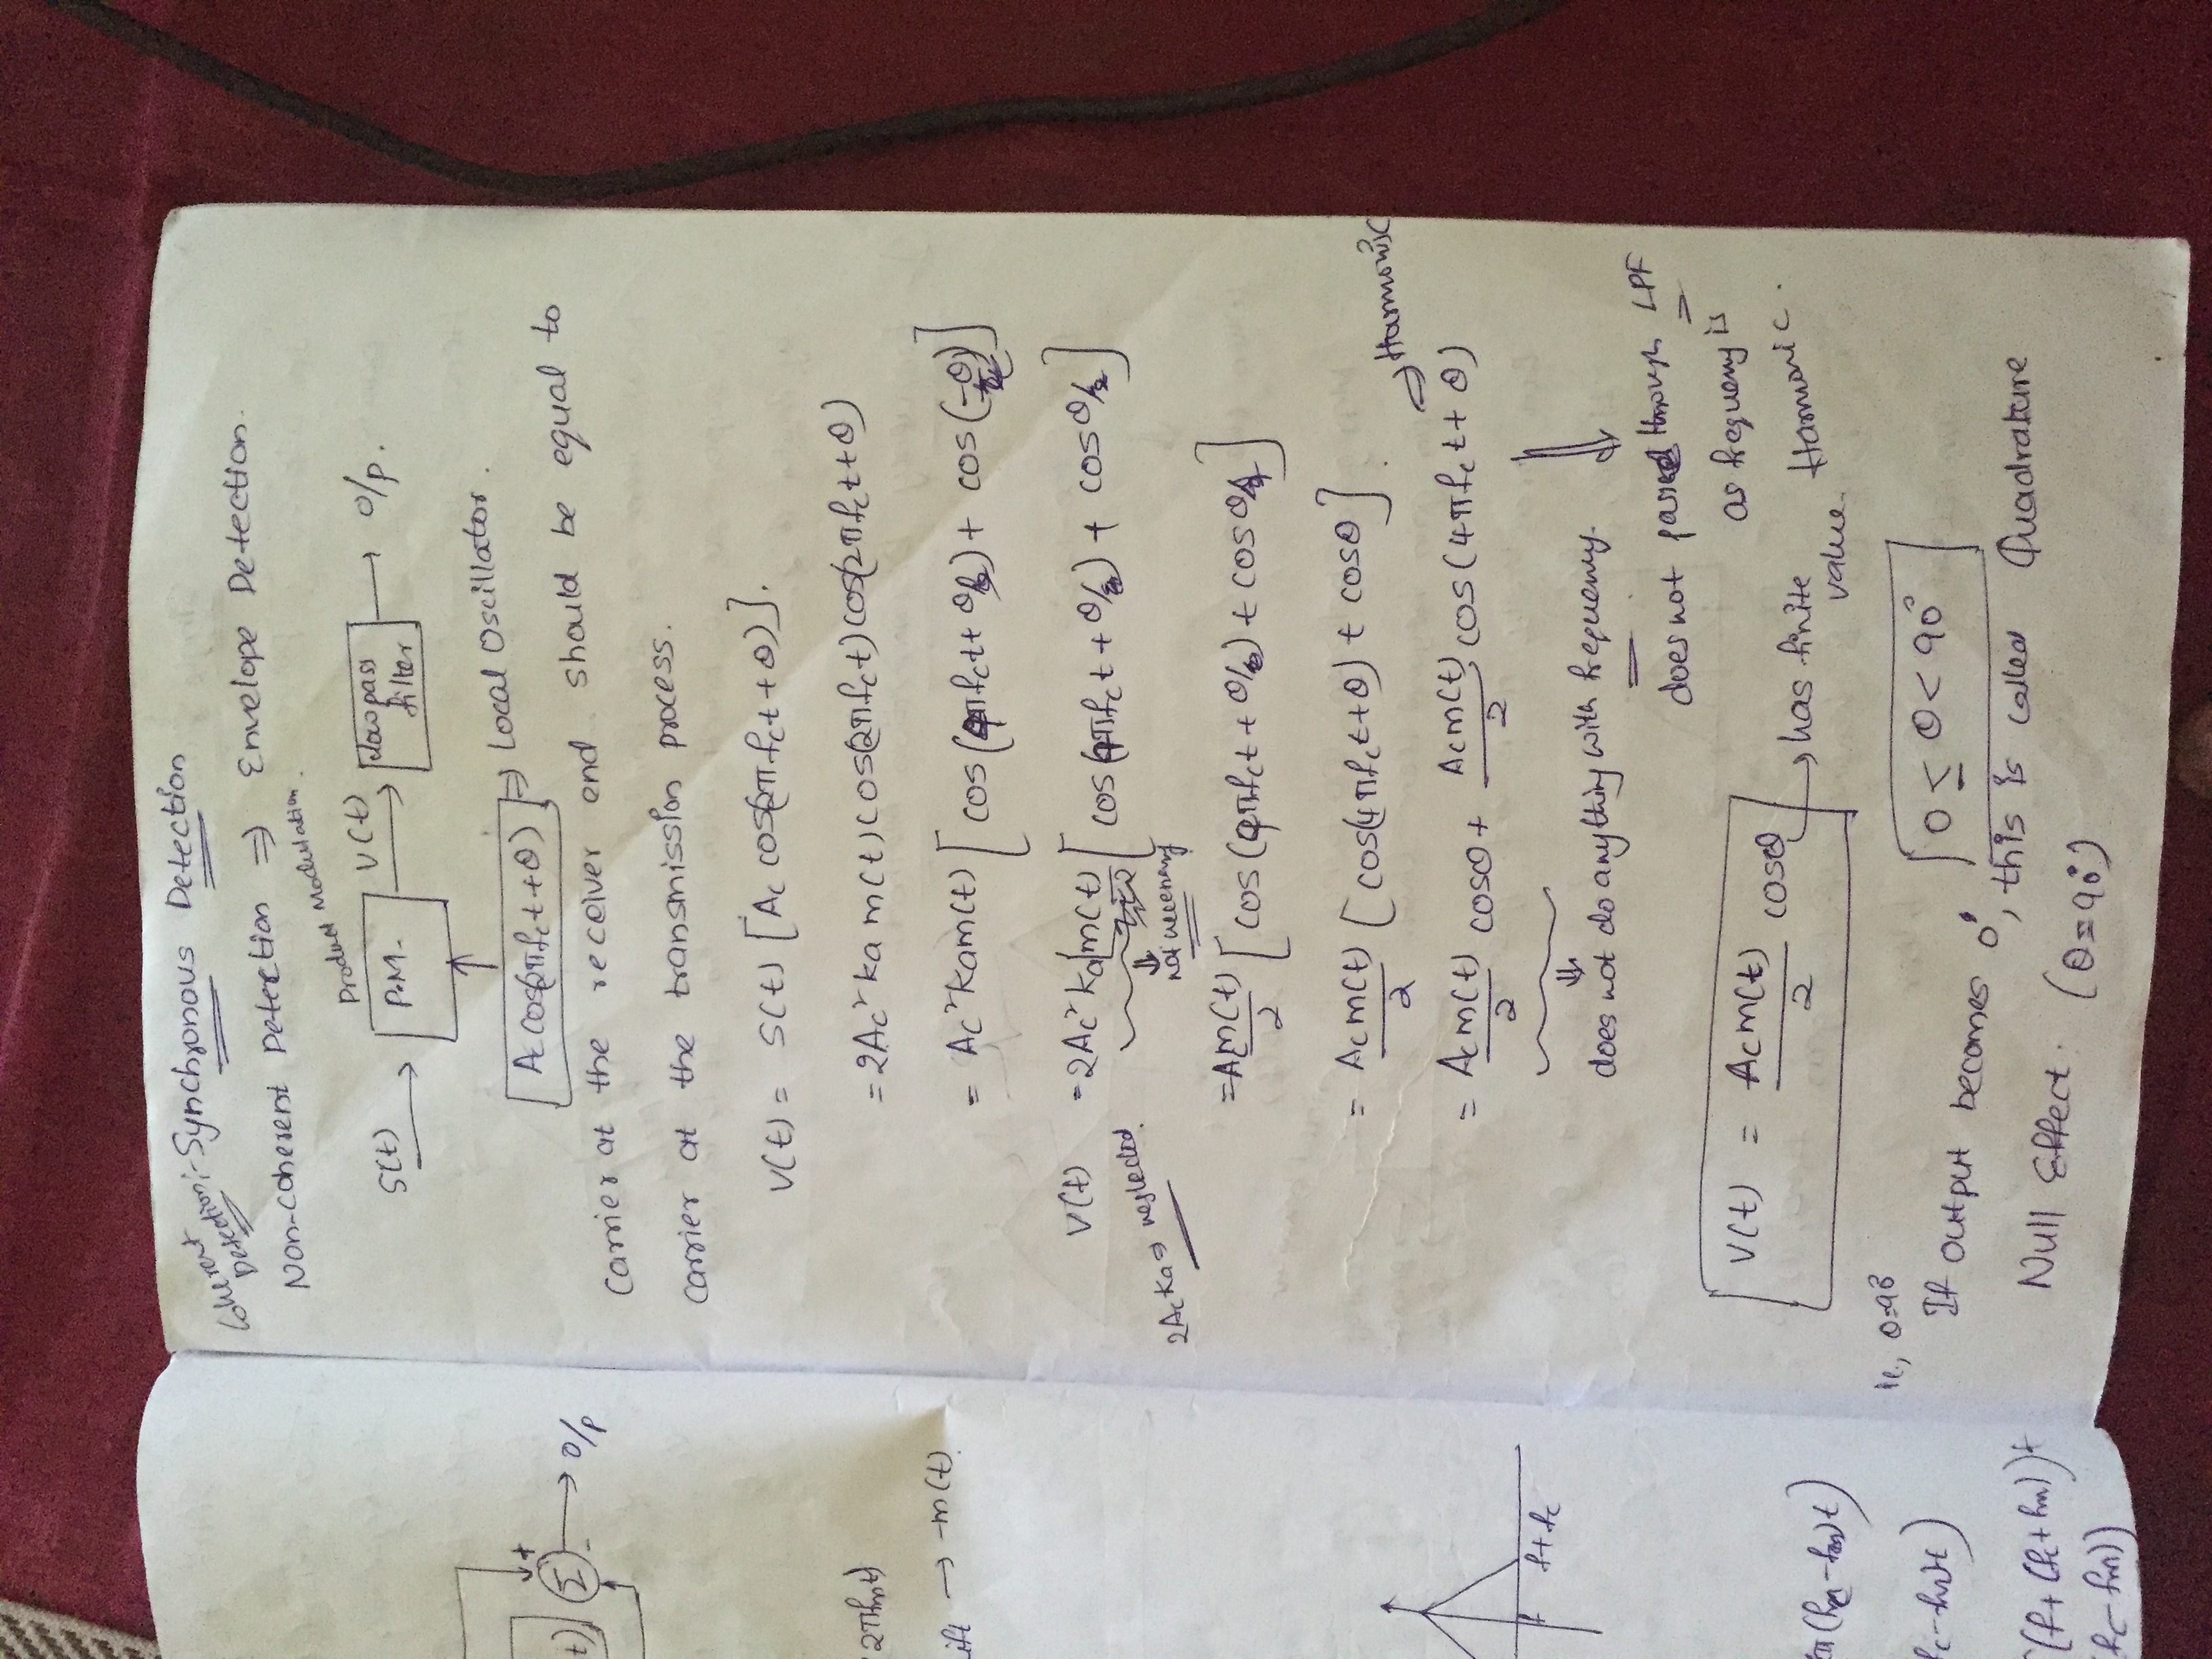 Coherent
Detection:- Synchronous Detection
Non-coherent Detection ⇒ Envelope Detection.
Product Modulation.
S(t) → P.M. V(t) → Low pass
filter → O/p.
Ac cos(2πfct+θ) ⇒ Local Oscillator.
carrier at the receiver end should be equal to
carrier at the transmission process.
V(t) = S(t) [Ac cos(2πfct+θ)].
= 2Ac² ka m(t) cos(2πfct) cos(2πfct+θ)
= Ac² kam(t) [cos(4πfct+θ) + cos(-θ)]
V(t) = 2Ac² ka m(t) [cos(4πfct+θ/2) + cosθ/2]
2Acka ⇒ neglected.
⇓
not necessary
= Acm(t)/2 [cos(4πfct+θ/2) + cosθ]
= Acm(t)/2 [cos(4πfct+θ) + cosθ].
⇒ Harmonic
= Acm(t)/2 cosθ + Acm(t)/2 cos(4πfct+θ)
⇓
does not do anything with frequency.
⇓
does not passed through LPF
as frequency is
Harmonic.
V(t) = Acm(t)/2 cosθ → has finite
value.
ie., θ=90°
0 ≤ θ < 90°
If output becomes 0, this is called Quadrature
Null Effect. (θ=90°)
+
t) Σ → O/p
-
2πfmt)
ift → -m(t).
f f+fc
π(fc-fm)t)
fc-fm)t)
(f+(fc+fm))t
fc-fm))